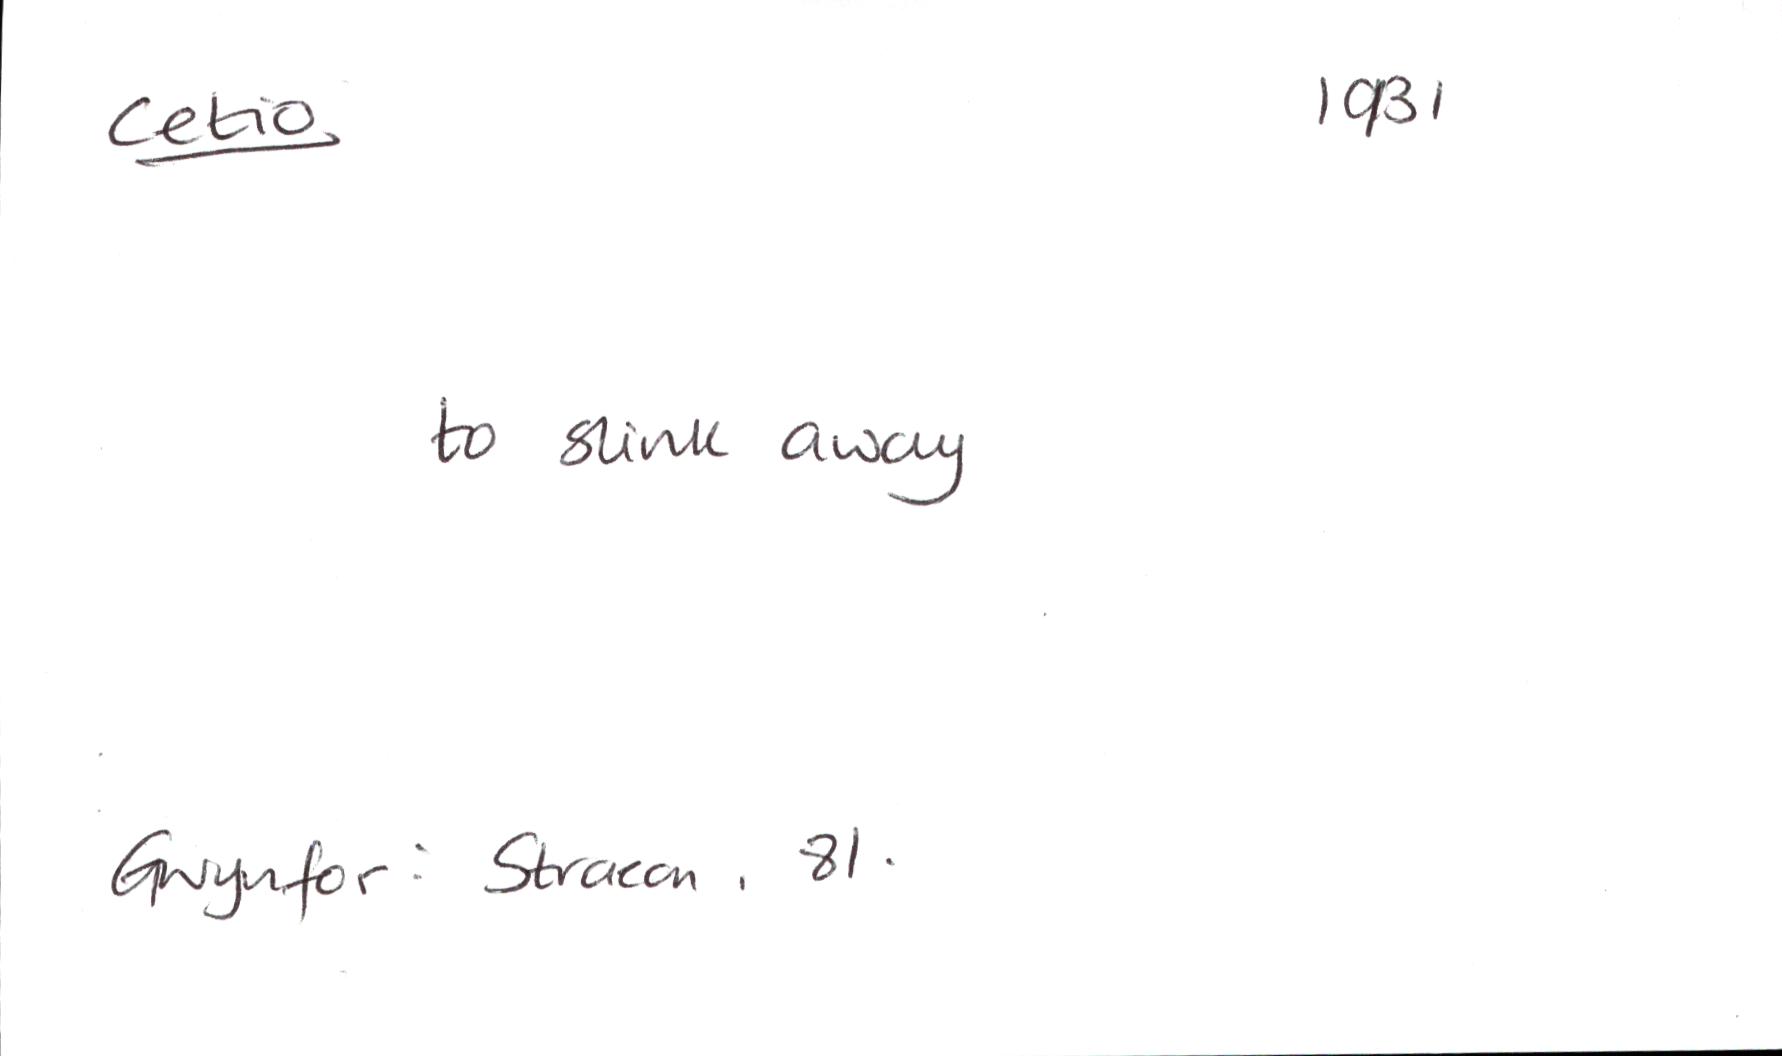 Cetio 1931
to slink away
Gwynfor: Straeon, 81.